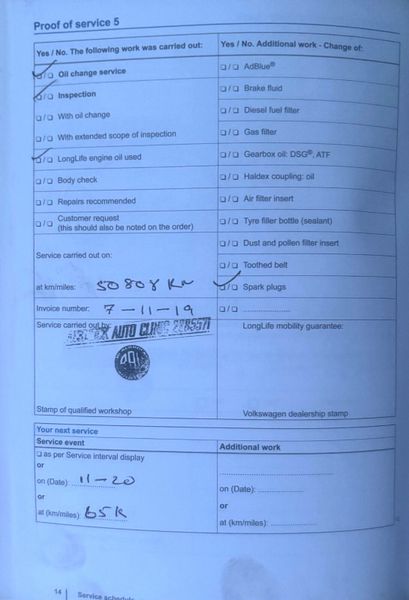 Proof of service 5
Yes / No. The following work was carried out:
Oil change service
Inspection
With oil change
With extended scope of inspection
LongLife engine oil used
Body check
Repairs recommended
Customer request
(this should also be noted on the order)
Service carried out on:
at km/miles: 50808 Km
Invoice number: 7-11-19
Service carried out by:
AUTO CLINIC
Stamp of qualified workshop
Yes / No. Additional work - Change of:
AdBlue®
Brake fluid
Diesel fuel filter
Gas filter
Gearbox oil: DSG®, ATF
Haldex coupling: oil
Air filter insert
Tyre filler bottle (sealant)
Dust and pollen filter insert
Toothed belt
Spark plugs
LongLife mobility guarantee:
Volkswagen dealership stamp
Your next service
Service event
as per Service interval display
or
on (Date): 11-20
or
at (km/miles): 65K
Additional work
on (Date):
or
at (km/miles):
14 Service schedule